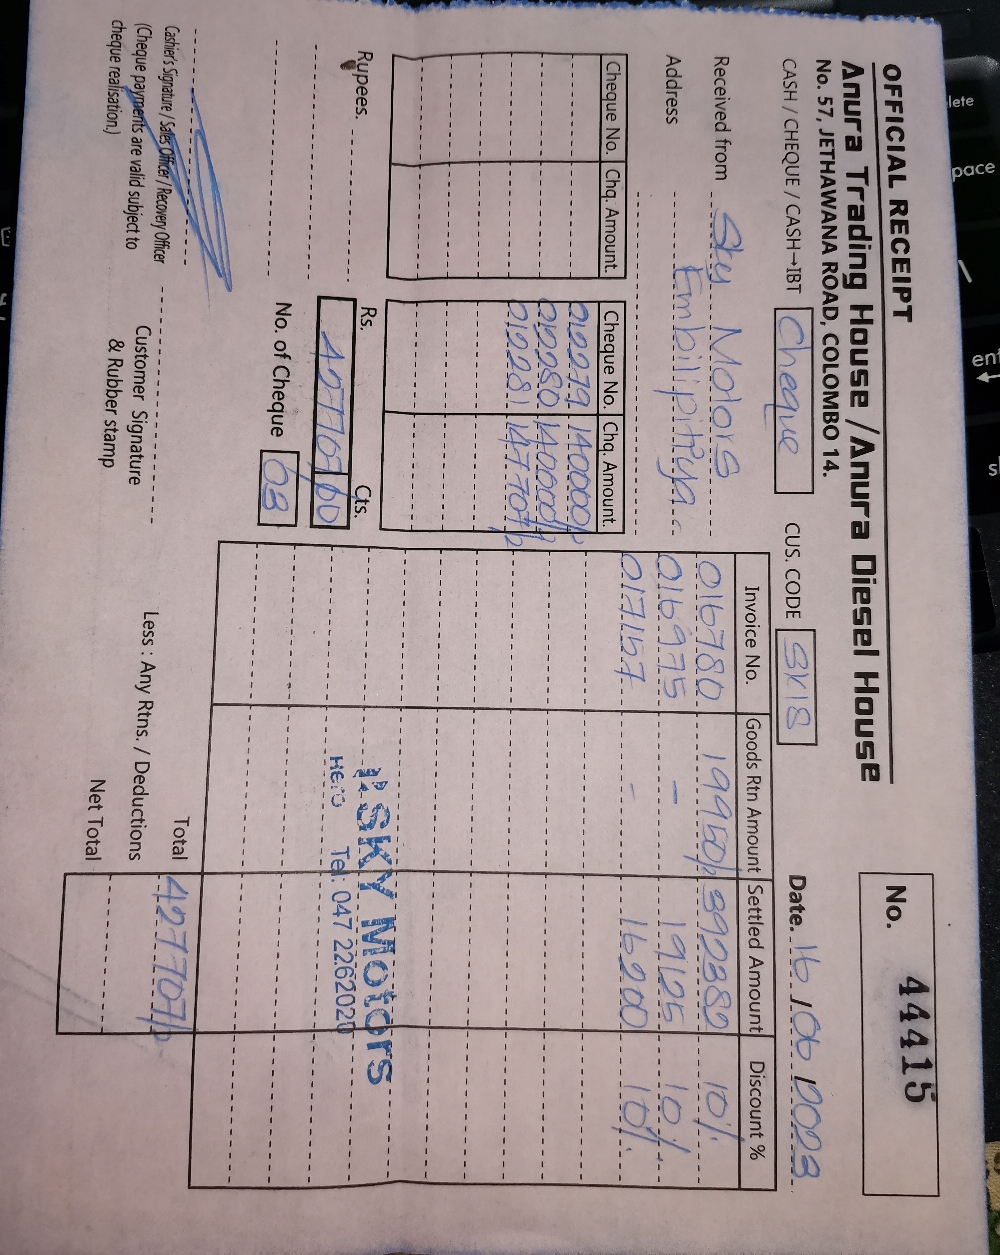 OFFICIAL RECEIPT
No. 44415
Anura Trading House / Anura Diesel House
No. 57, JETHAWANA ROAD, COLOMBO 14.
CASH / CHEQUE / CASH→IBT Cheque CUS. CODE SK18 Date. 16/06/2023
Received from Sky Motors
Address Embilipitiya
Cheque No. Chq. Amount. Cheque No. Chq. Amount.
012279 140000/=
012280 140000/=
012281 147707/=
Invoice No. Goods Rtn Amount Settled Amount Discount %
016780 19950/= 392382 10%
016975 - 19125 10%
017157 - 16200 10%
Rupees. Rs. Cts.
427707/00
No. of Cheque 03
SKY Motors
Hero Tel: 047 2262020
Total 427707/=
Less : Any Rtns. / Deductions
Net Total
Cashier's Signature / Sales Officer / Recovery Officer
(Cheque payments are valid subject to
cheque realisation.)
Customer Signature
& Rubber stamp
lete
pace
ent